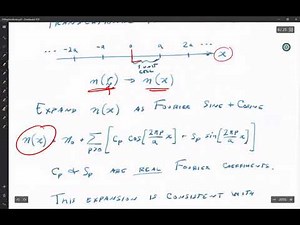 ... -2a -a 0 a 2a ... x
1 unit cell
n(r) ⇒ n(x)
EXPAND n(x) AS FOURIER SINE + COSINE
n(x) = n₀ + Σ p>0 [Cp cos[2πp/a x] + Sp sin[2πp/a x]]
Cp & Sp ARE REAL FOURIER COEFFICIENTS.
THIS EXPANSION IS CONSISTENT WITH